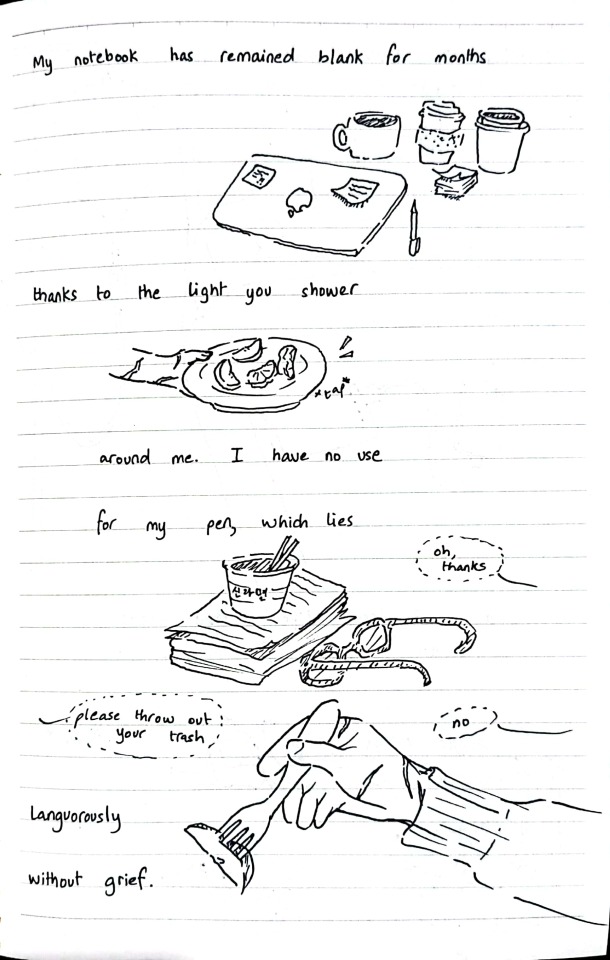 My notebook has remained blank for months
thanks to the light you shower
*tap*
around me. I have no use
for my pen, which lies
oh,
thanks
신라면
please throw out
your trash
no
Languorously
without grief.